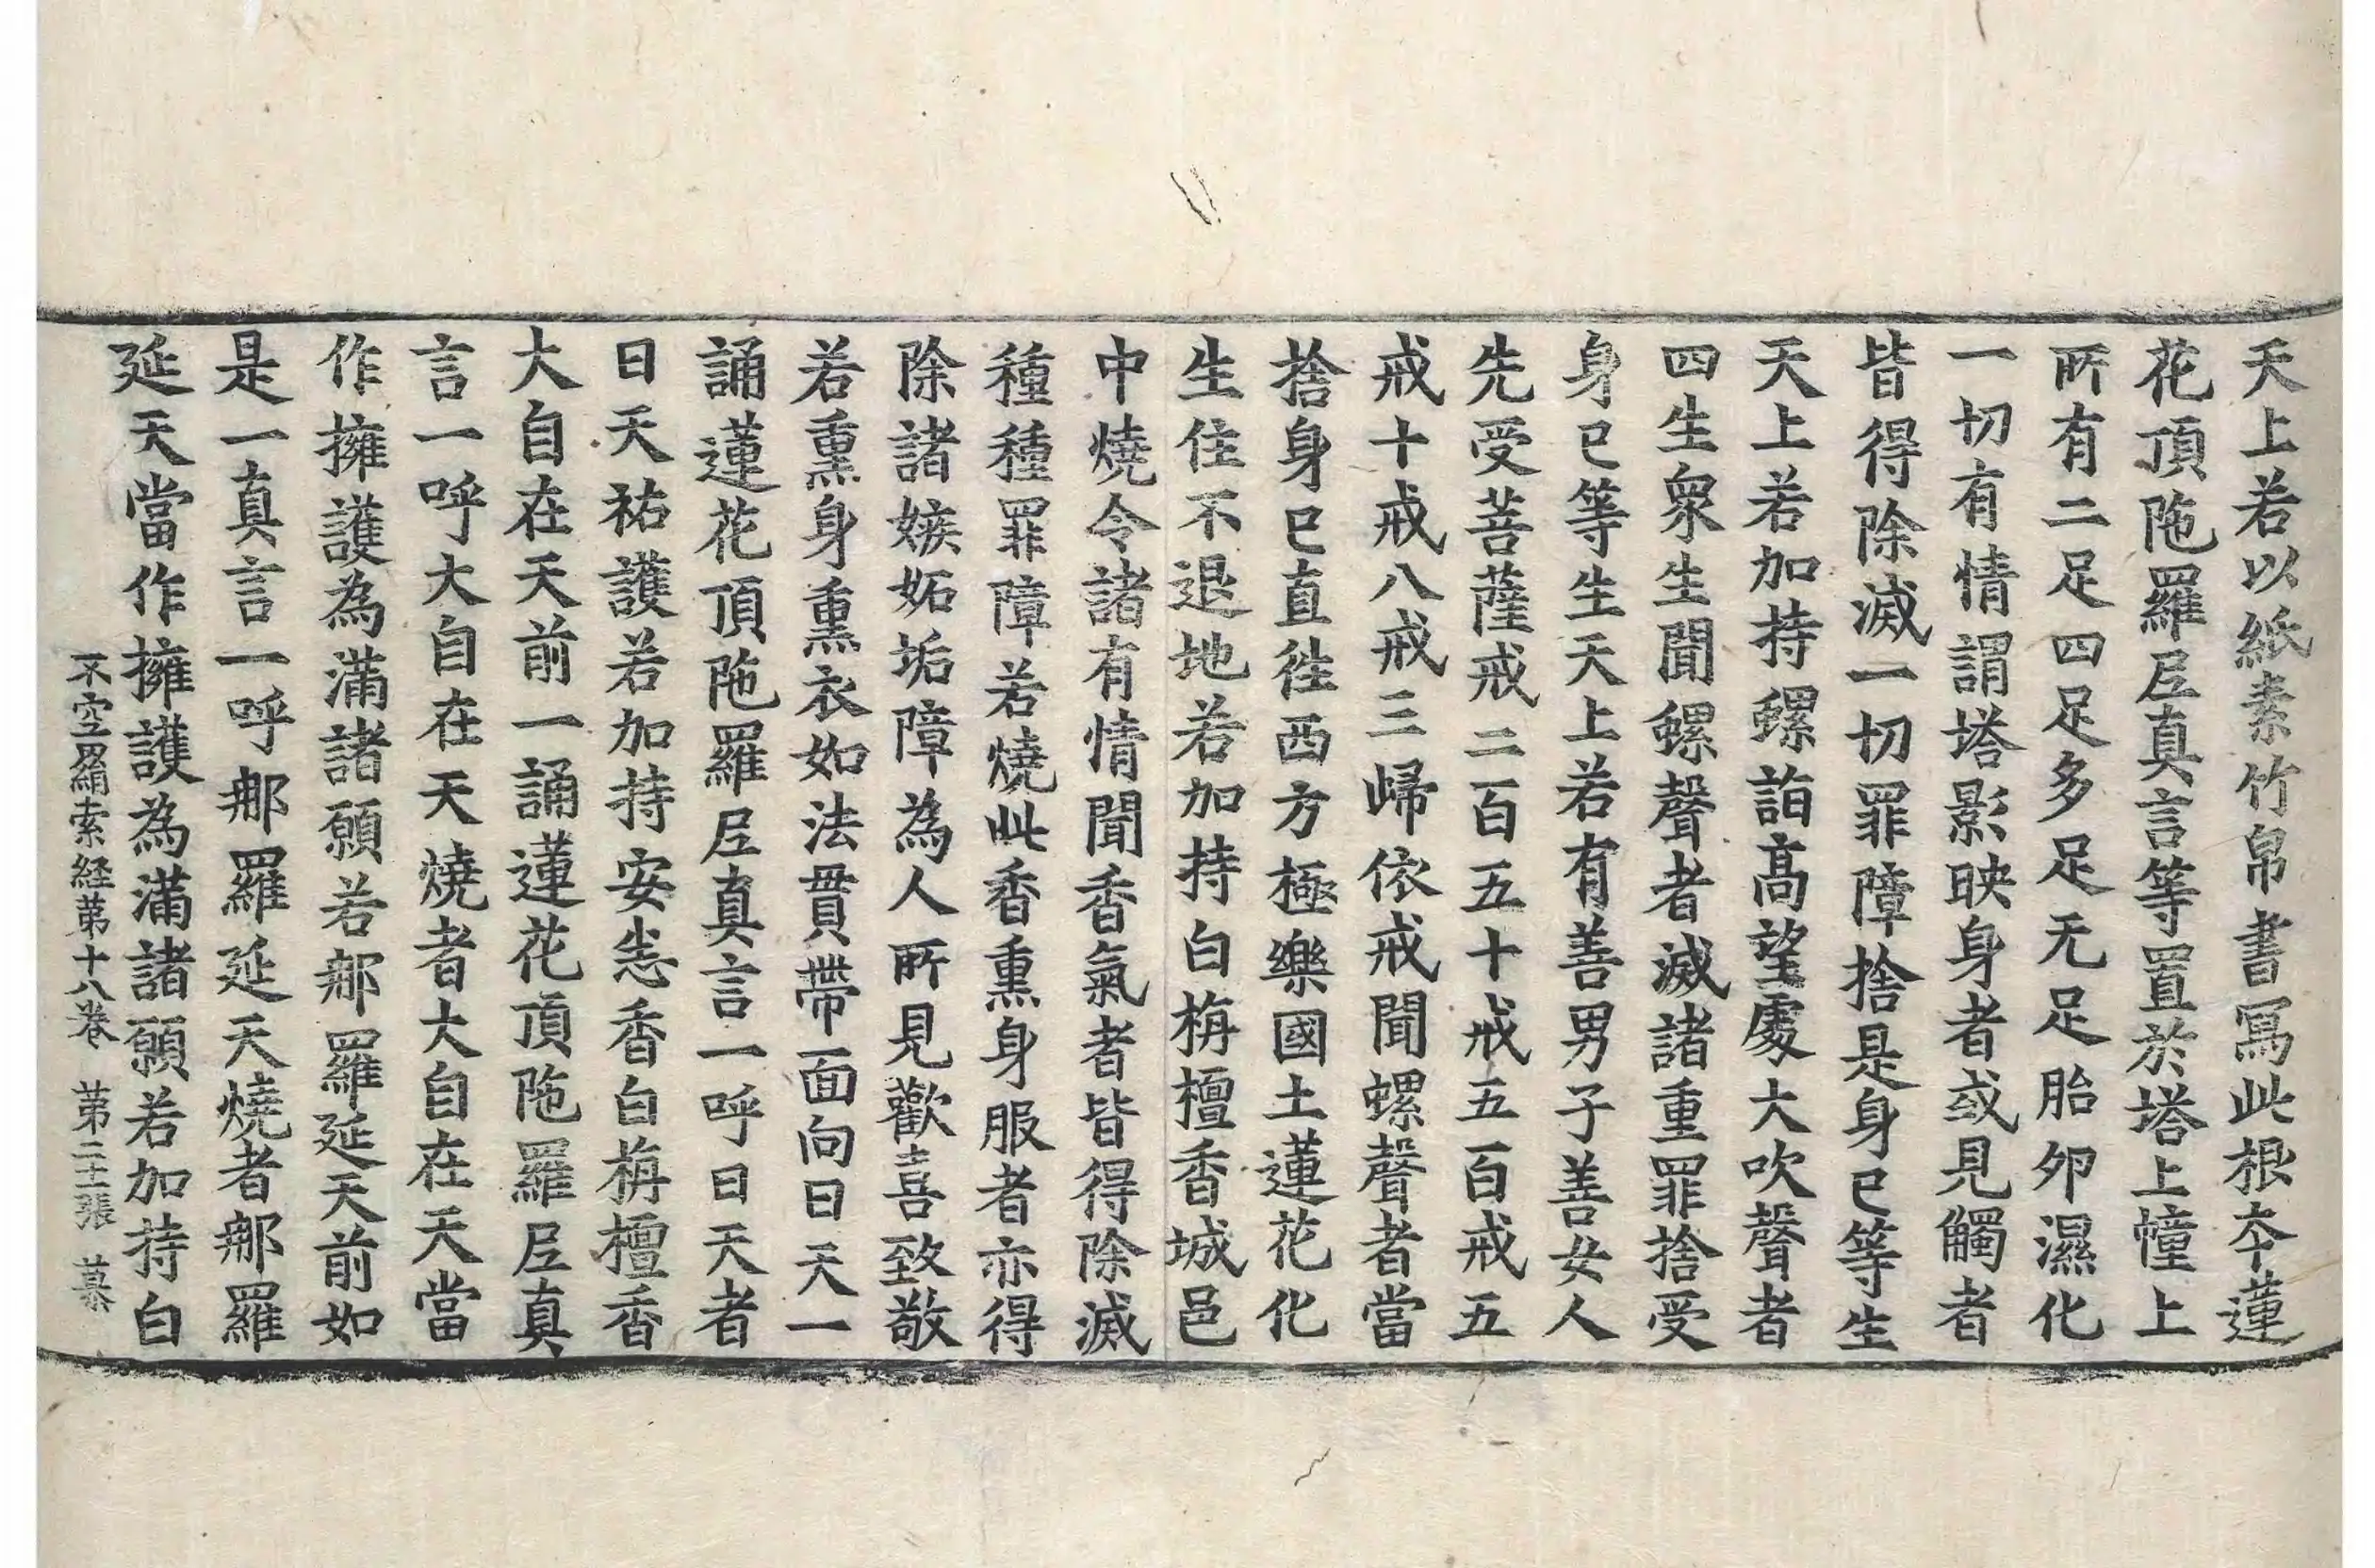 天上若以紙素竹帛書寫此根夲蓮
花頂陁羅𡰱真言等置於塔上幢上
所有二足四足多足无足胎卵濕化
一切有情謂塔影映身者或見觸者
皆得除滅一切罪障捨是身已等生
天上若加持螺詣髙望處大吹聲者
四生衆生聞螺聲者滅諸重罪捨受
身已等生天上若有善男子善女人
先受菩薩戒二百五十戒五百戒五
戒十戒八戒三歸依戒聞螺聲者當
捨身已直徃西方極樂國土蓮花化
生住不退地若加持白栴檀香城邑
中燒令諸有情聞香氣者皆得除滅
種種罪障若燒此香熏身服者亦得
除諸嫉妬垢障為人所見歡喜致敬
若熏身熏衣如法貫帶面向日天一
誦蓮花頂陁羅𡰱真言一呼日天者
日天祐護若加持安悉香白栴檀香
大自在天前一誦蓮花頂陁羅𡰱真
言一呼大自在天燒者大自在天當
作擁護為滿諸願若𨚗羅延天前如
是一真言一呼𨚗羅延天燒者𨚗羅
延天當作擁護為滿諸願若加持白
不空羂索経苐十八卷 苐二十二張 慕